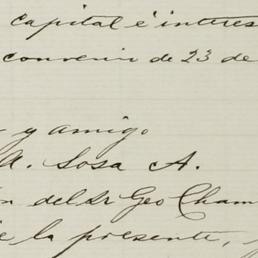 capital é interes
convenio de 23 de
y amigo
A. Sosa A.
del Sr Geo Cham
la presente,